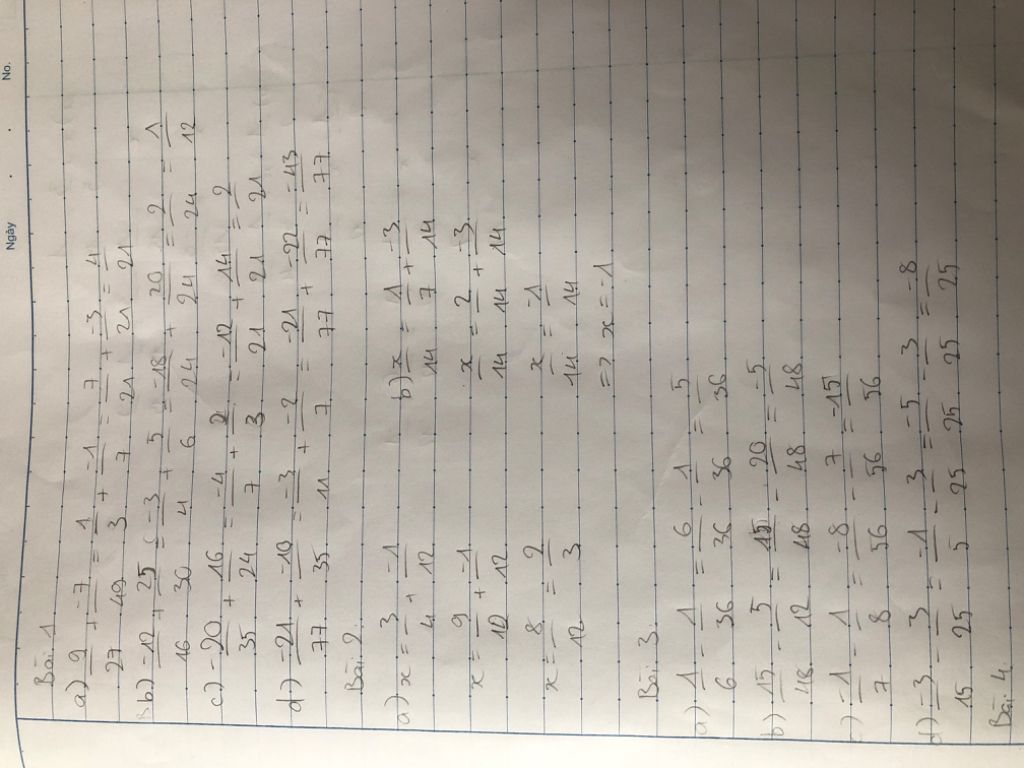 Ngày . . No.
Bài 1
a) 9/27 + -7/49 = 1/3 + -1/7 = 7/21 + -3/21 = 4/21
b) -12/16 + 25/30 = -3/4 + 5/6 = -18/24 + 20/24 = 2/24 = 1/12
c) -20/35 + 16/24 = -4/7 + 2/3 = -12/21 + 14/21 = 2/21
d) -21/77 + -10/35 = -3/11 + -2/7 = -21/77 + -22/77 = -43/77
Bài 2.
a) x = 3/4 + -1/12
x = 9/12 + -1/12
x = 8/12 = 2/3
b) x/14 = 1/7 + -3/14
x/14 = 2/14 + -3/14
x/14 = -1/14
=> x = -1
Bài 3.
a) 1/6 - 1/36 = 6/36 - 1/36 = 5/36
b) 15/48 - 5/12 = 15/48 - 20/48 = -5/48
c) -1/7 - 1/8 = -8/56 - 7/56 = -15/56
d) -3/15 - 3/25 = -1/5 - 3/25 = -5/25 - 3/25 = -8/25
Bài 4.